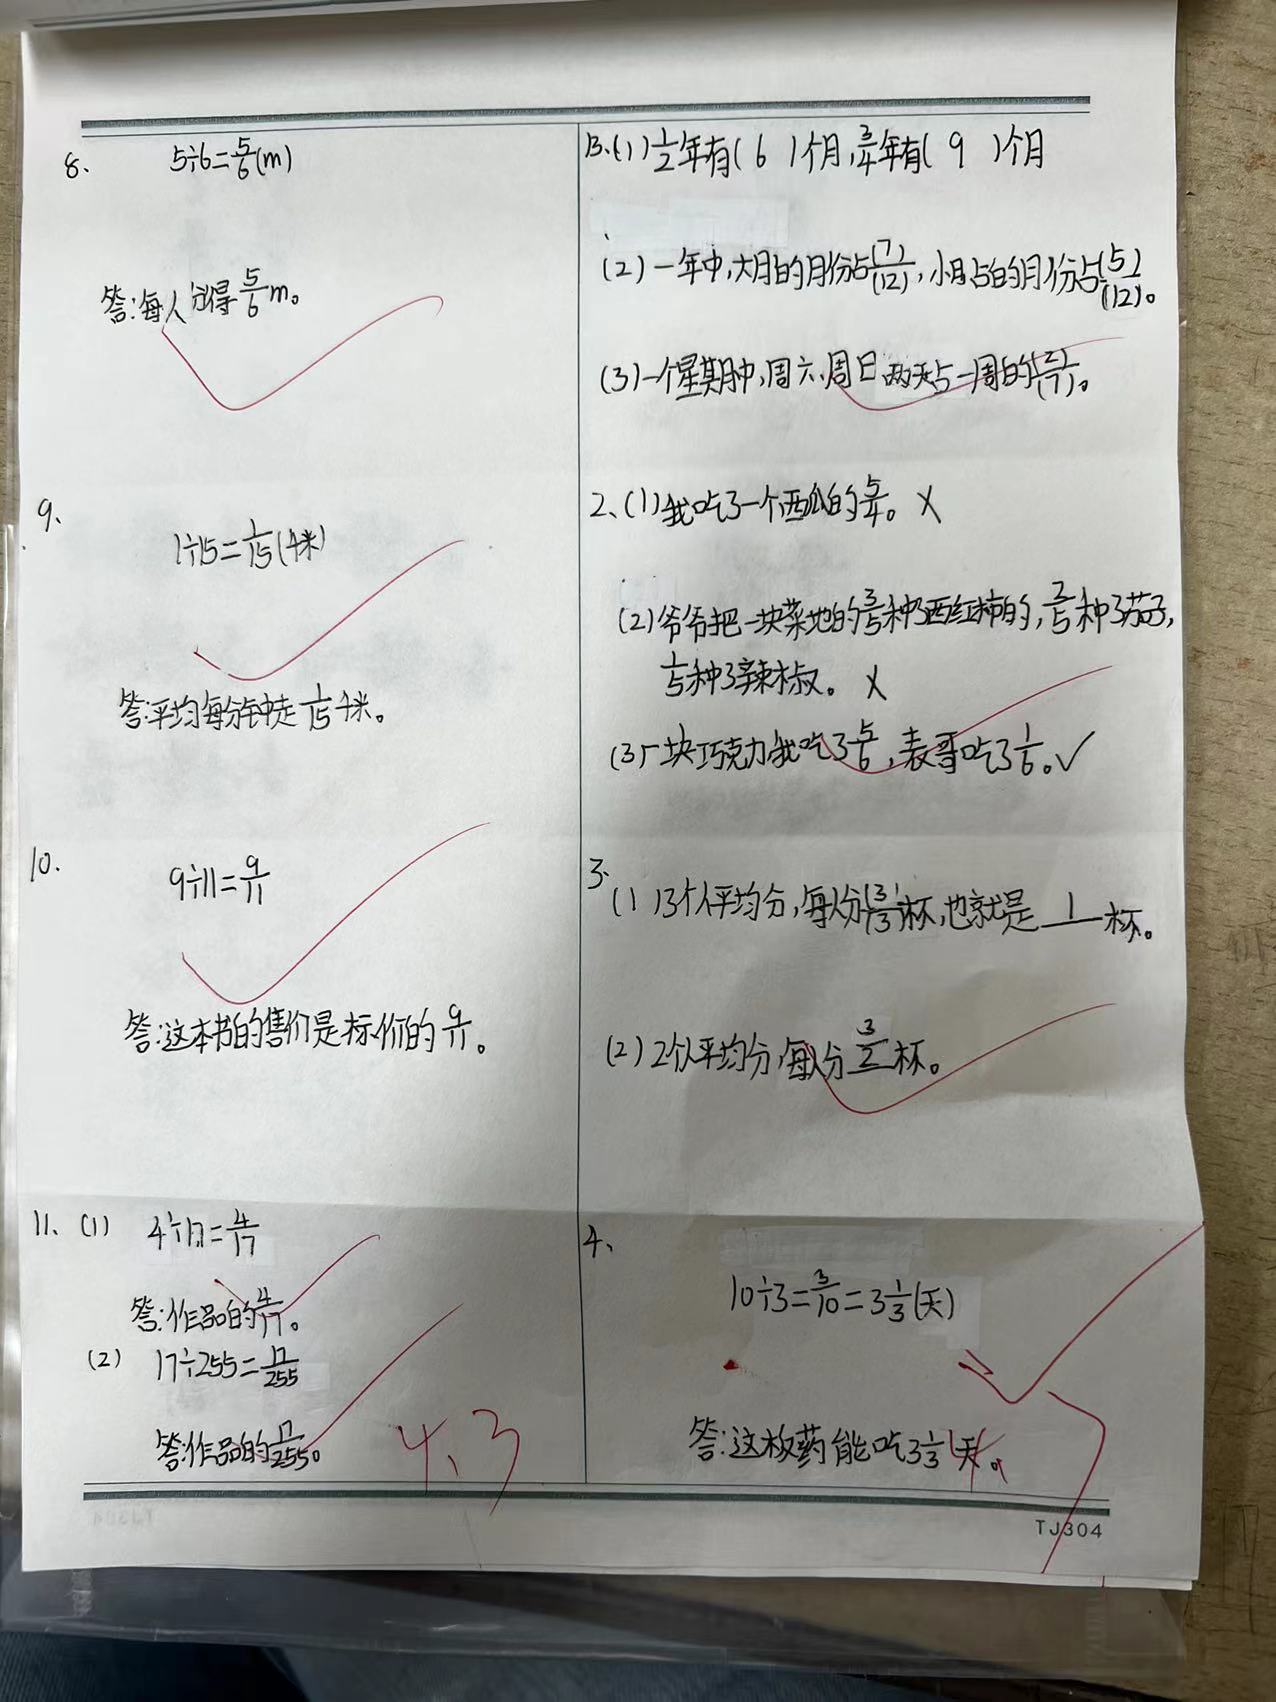 8、 5÷6=5/6(m)
答:每人分得5/6m。
9、
1÷15=1/15(千米)
答:平均每分钟走1/15千米。
10、 9÷11=9/11
答:这本书的售价是标价的9/11。
11、(1) 4÷17=4/17
答:作品的4/17。
(2) 17÷255=17/255
答:作品的17/255。
4、3
13、(1)1/2年有( 6 )个月,3/4年有( 9 )个月
(2)一年中,大月的月份占(7)/(12),小月占的月份占(5)/(12)。
(3)一个星期中,周六、周日两天占一周的(2)/(7)。
2、(1)我吃了一个西瓜的5/4。 X
(2)爷爷把一块菜地的3/5种了西红柿的,2/5种了茄子,
1/5种了辣椒。 X
(3)一块巧克力我吃了5/6,表哥吃了1/6。✓
3、
(1)3个人平均分,每人分(3)/(3)杯,也就是 1 杯。
(2)2个人平均分,每人分3/2杯。
4、
10÷3=3/10=3 1/3(天)
答:这板药能吃3 1/3天。
TJ304